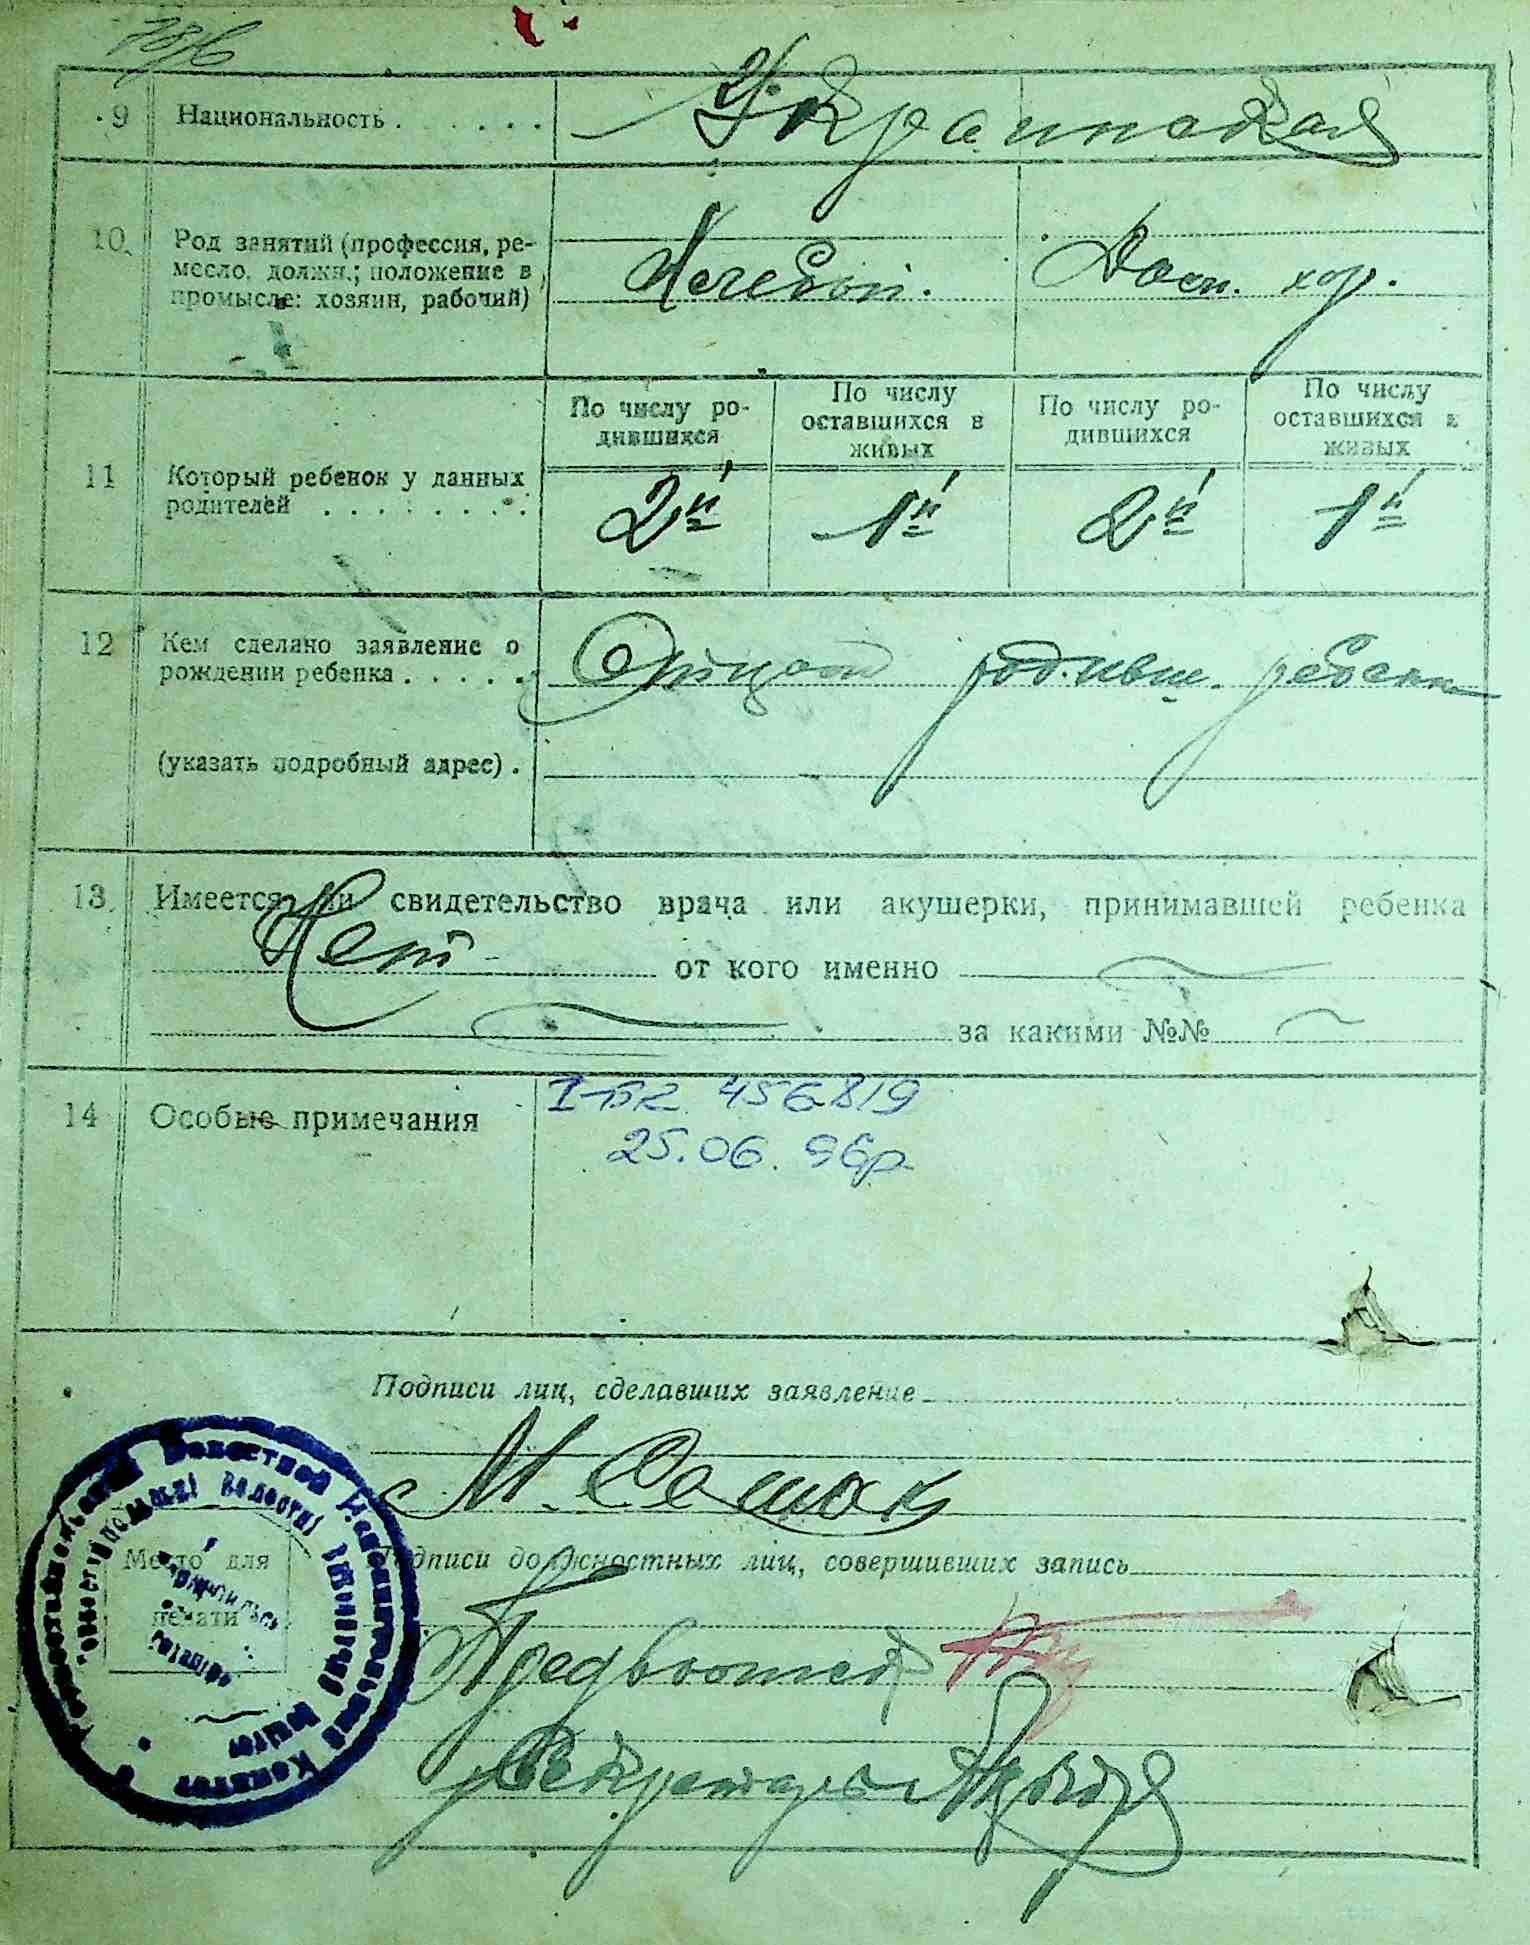 78/6
9 Национальность . . . . . . Украинская
10 Род занятий (профессия, ре-
месло, должн.; положение в
промысле: хозяин, рабочий)
Дом. хоз.
По числу ро-
дившихся
По числу
оставшихся в
живых
По числу ро-
дившихся
По числу
оставшихся в
живых
11 Который ребенок у данных
родителей . . . . . . . .
2й 1й 2й 1й
12 Кем сделано заявление о
рождении ребенка . . . . .
Отцом родивш. ребенка
(указать подробный адрес) .
13 Имеется ли свидетельство врача или акушерки, принимавшей ребенка
Нет от кого именно
за какими №№
14 Особые примечания
I-БК 456819
25.06.96р
Подписи лиц, сделавших заявление
М. Семак
Подписи должностных лиц, совершивших запись
Место для
печати
Секретарь
Волостной Исполнительный Комитет